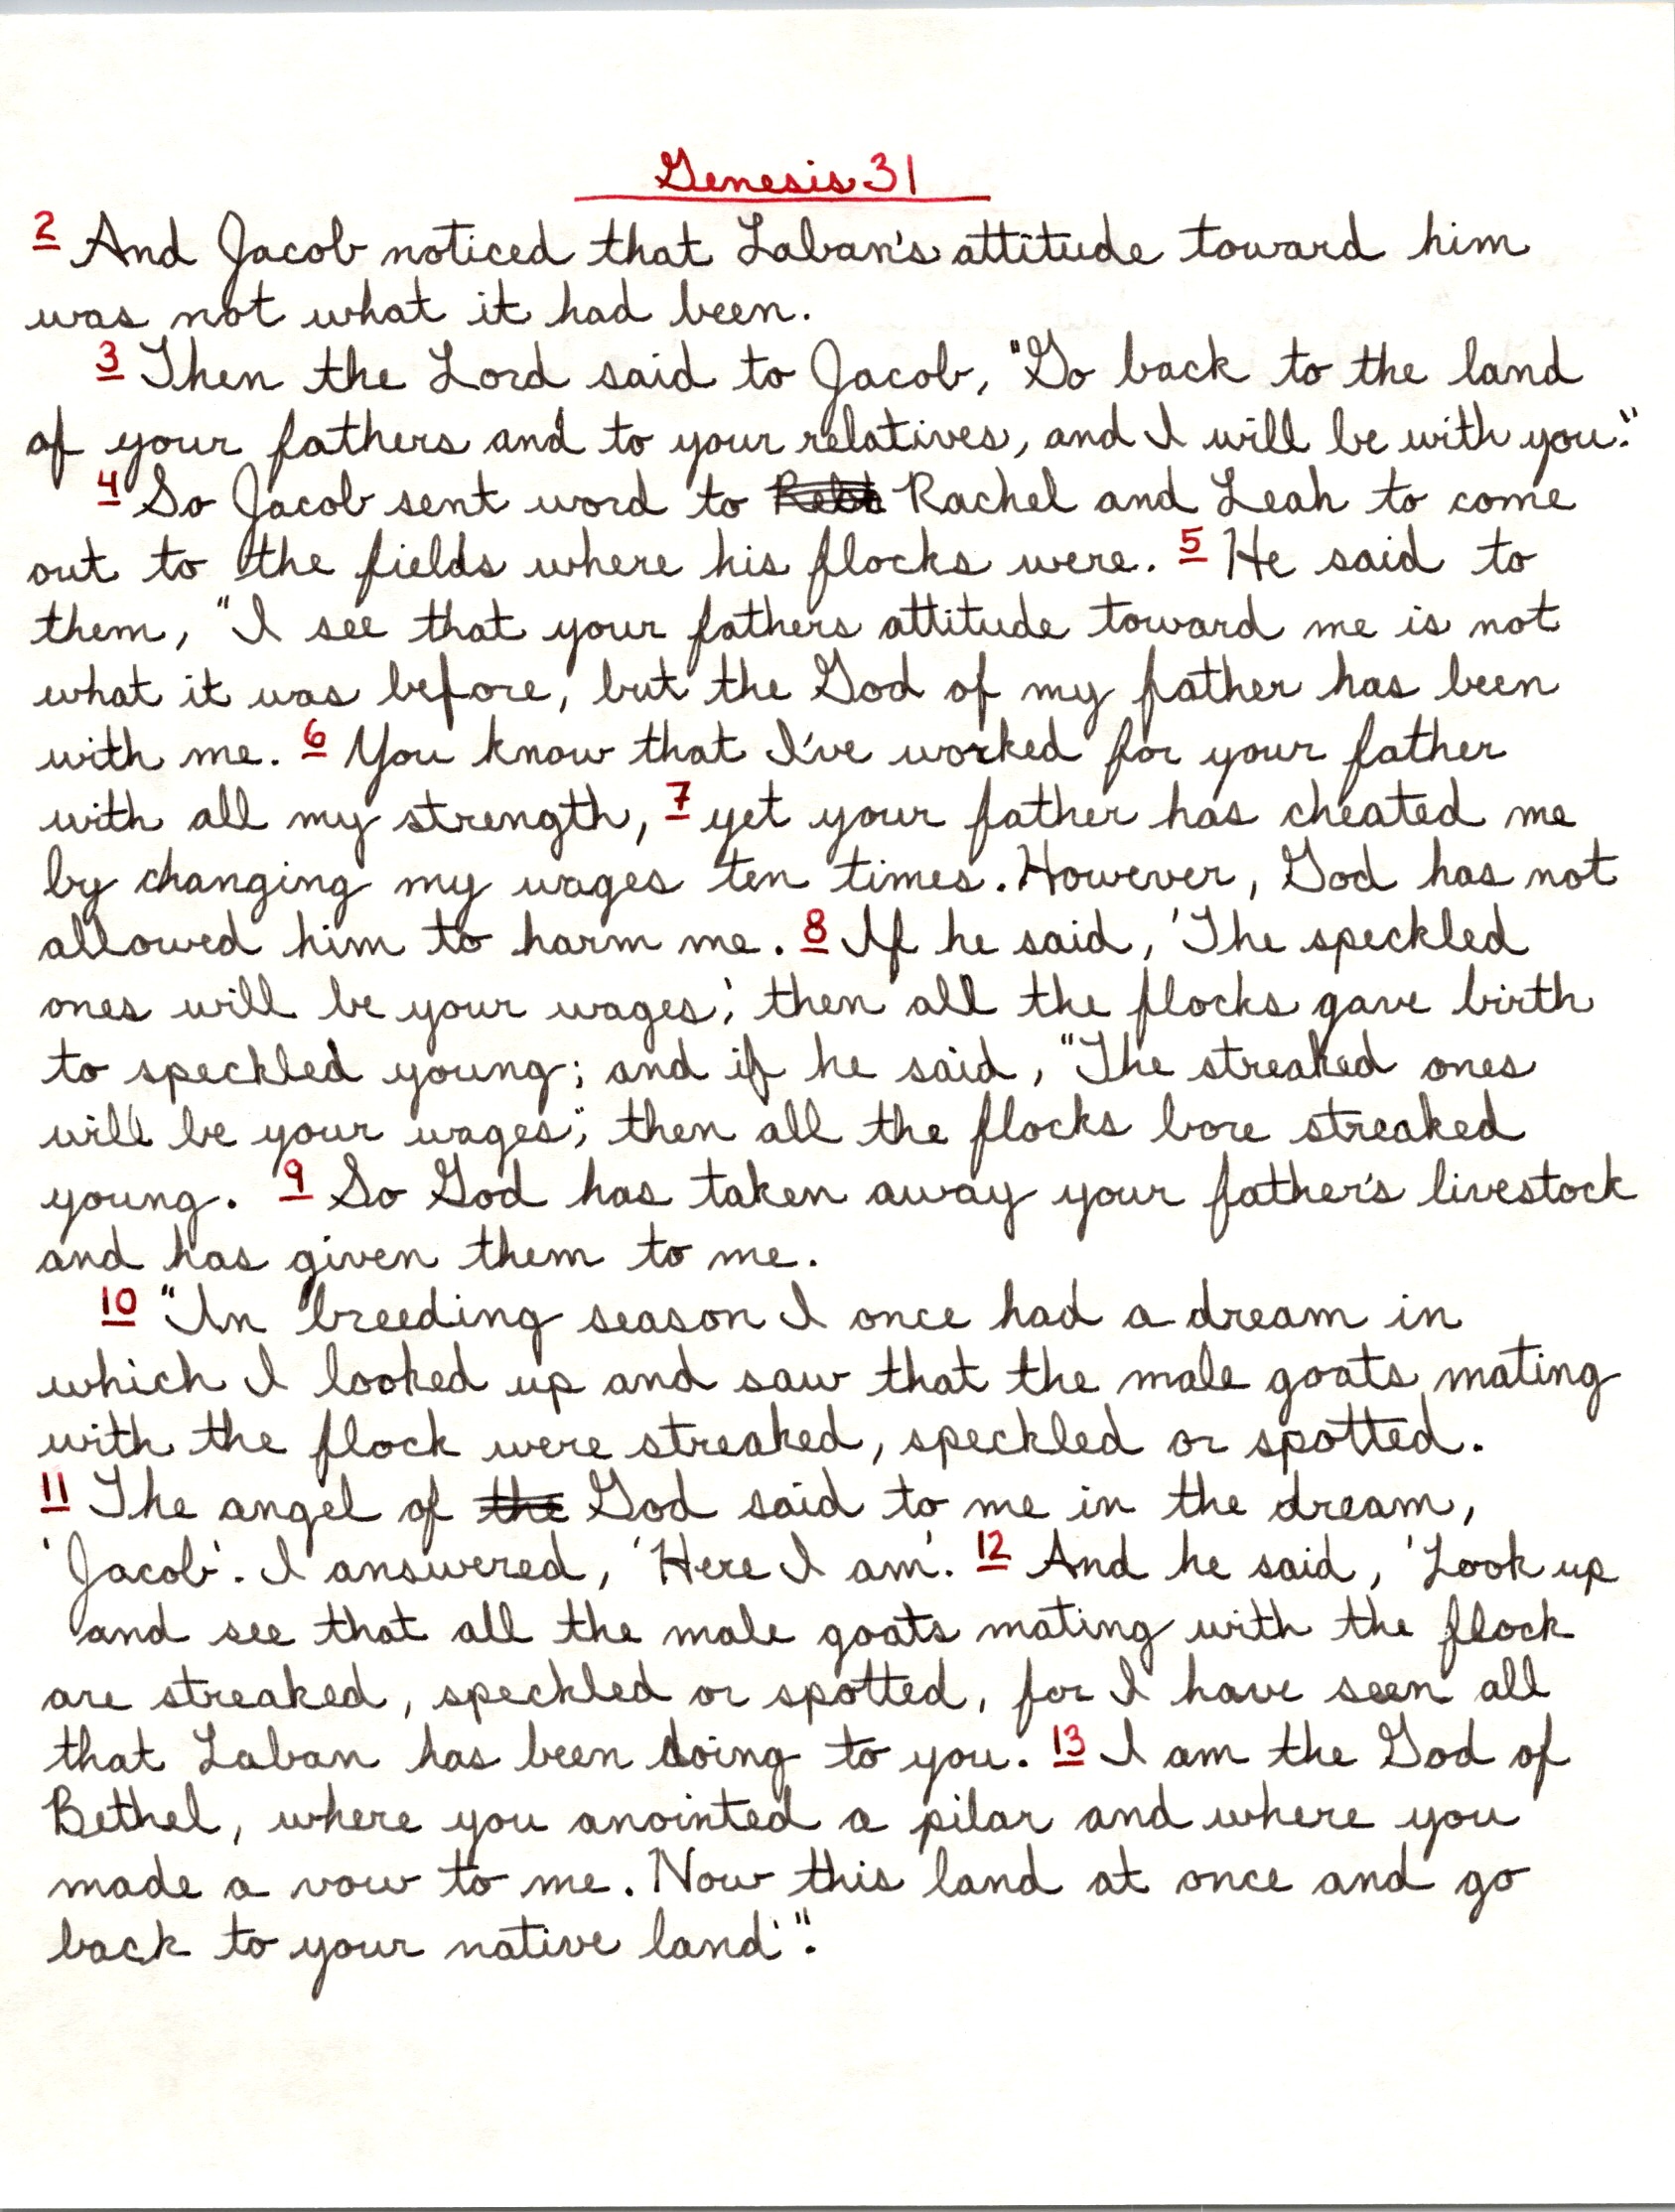 Genesis 31
2 And Jacob noticed that Laban's attitude toward him
was not what it had been.
3 Then the Lord said to Jacob, "Go back to the land
of your fathers and to your relatives, and I will be with you."
4 So Jacob sent word to Rachel and Leah to come
out to the fields where his flocks were. 5 He said to
them, "I see that your fathers attitude toward me is not
what it was before, but the God of my father has been
with me. 6 You know that I've worked for your father
with all my strength, 7 yet your father has cheated me
by changing my wages ten times. However, God has not
allowed him to harm me. 8 If he said, 'The speckled
ones will be your wages,' then all the flocks gave birth
to speckled young; and if he said, "The streaked ones
will be your wages," then all the flocks bore streaked
young. 9 So God has taken away your father's livestock
and has given them to me.
10 "In breeding season I once had a dream in
which I looked up and saw that the male goats mating
with the flock were streaked, speckled or spotted.
11 The angel of the God said to me in the dream,
'Jacob'. I answered, 'Here I am'. 12 And he said, 'Look up
and see that all the male goats mating with the flock
are streaked, speckled or spotted, for I have seen all
that Laban has been doing to you. 13 I am the God of
Bethel, where you anointed a pilar and where you
made a vow to me. Now this land at once and go
back to your native land'."